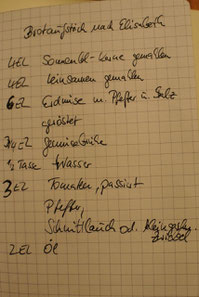 Brotaufstich nach Elisabeth
4EL Sonnenbl-kerne gemahlen
4EL Leinsamen gemahlen
6EL Erdnüsse m. Pfeffer u. Salz
geröstet
3/4EL Gemüsebrühe
1/2 Tasse Wasser
3EL Tomaten, passiert
Pfeffer,
Schnittlauch od. kleingeschn.
Zwiebel
2EL Öl